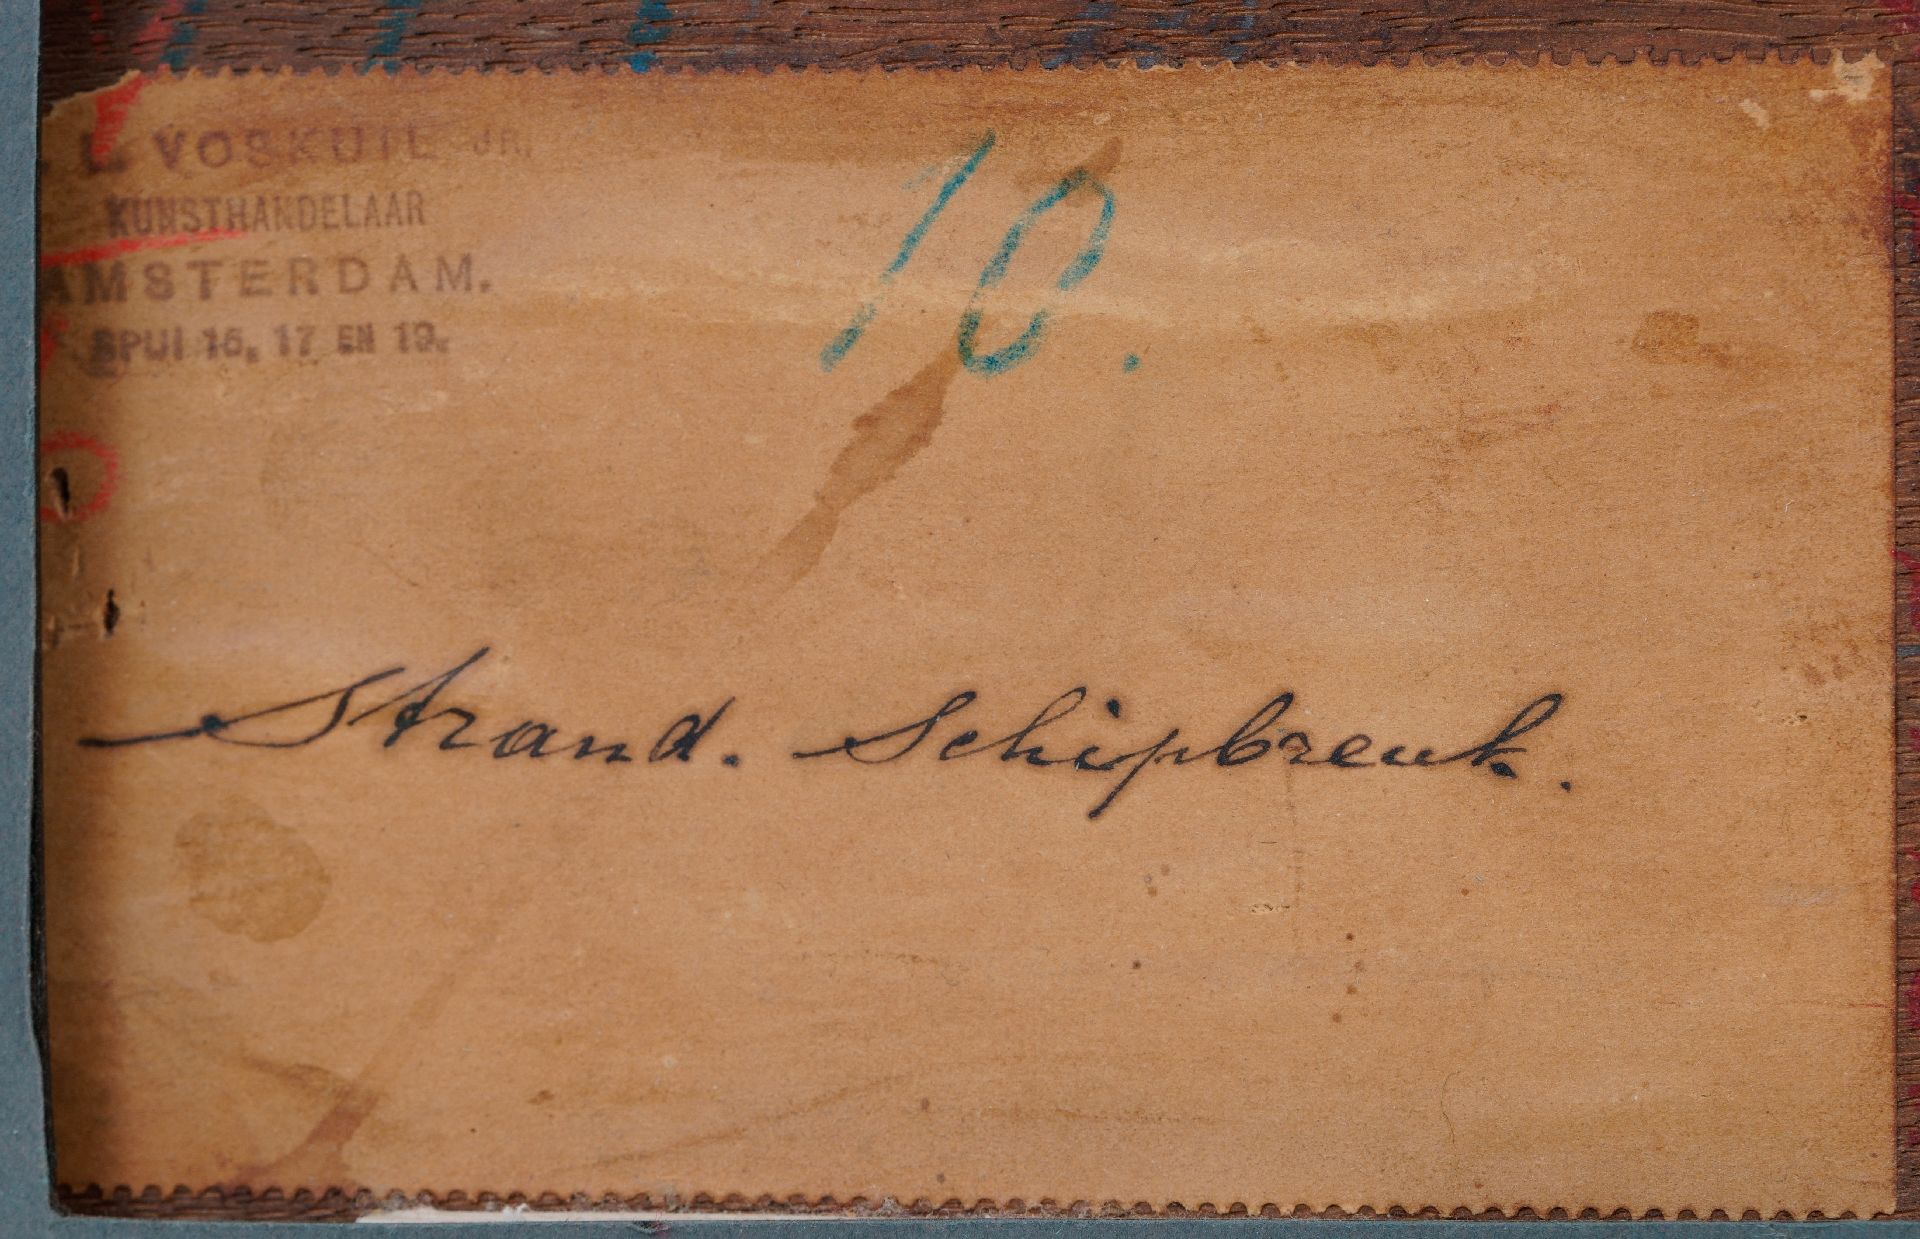 VOSKUIL JR.
KUNSTHANDELAAR
AMSTERDAM.
SPUI 15, 17 EN 19.
10.
Strand. Schipbreuk.